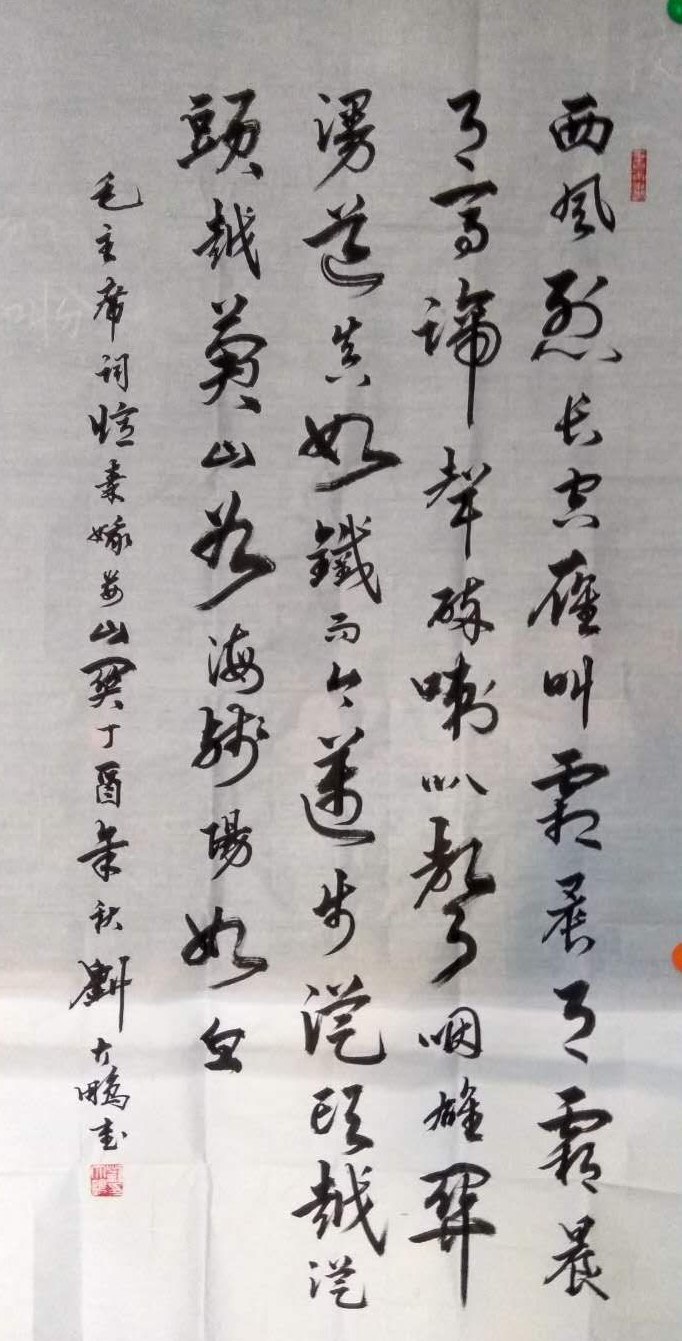 西風烈长空雁叫霜晨月霜晨
月馬蹄聲碎喇叭聲咽雄關
漫道真如鐵而今邁步從頭越從
頭越蒼山如海殘陽如血
毛主席词憶秦娥娄山關丁酉年秋劉大鵬書